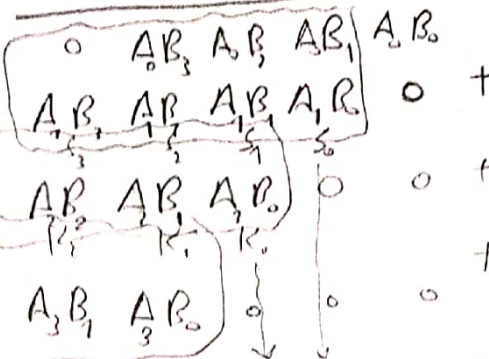 0 A₀B₃ A₀B₂ A₀B₁ A₀B₀
A₁B₃ A₁B₂ A₁B₁ A₁B₀ 0 +
S₃ S₂ S₁ S₀
A₂B₂ A₂B₁ A₂B₀ 0 0 +
K₂ K₁ K₀
+
A₃B₁ A₃B₀ 0 0 0